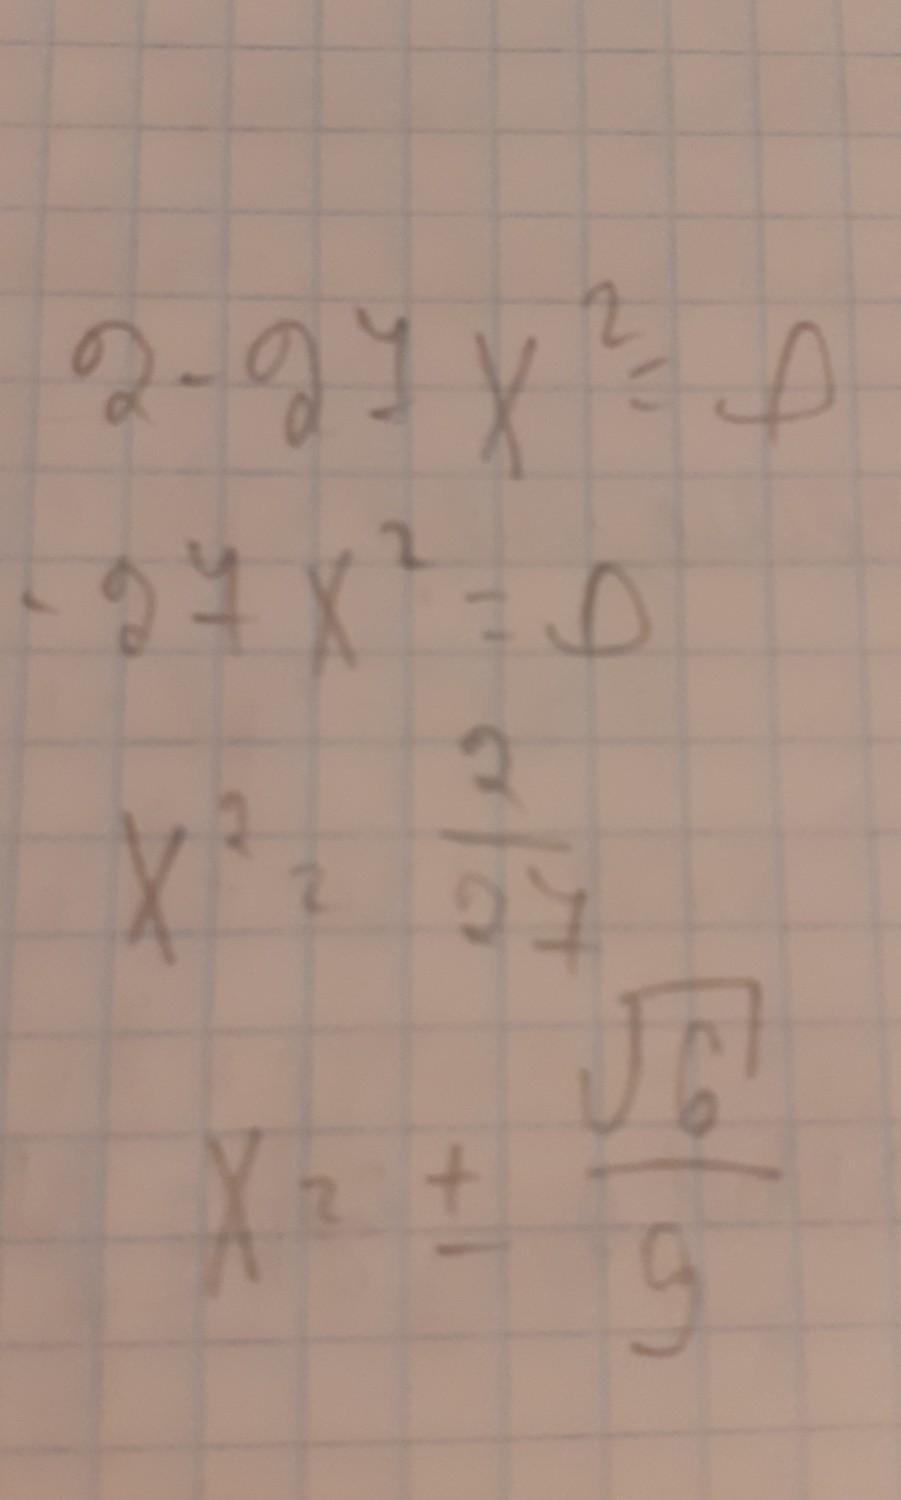 2 - 27x² = 0
- 27x² = 0
x² = 2/27
x = ± √6/9